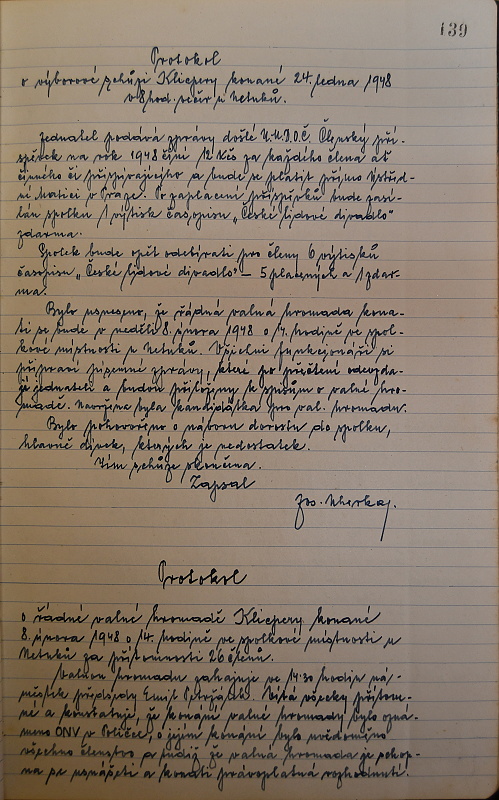 139
Protokol
o výborové schůzi Klicpery konané 24. ledna 1948
v 8 hod. večer u Netuků.
Jednatel podává zprávy došlé Ú.M.D.O.Č. Členský pří-
spěvek na rok 1948 činí 12 Kčs za každého člena ať
činného či přispívajícího a bude se platit přímo Ústřed-
ní Matici v Praze. Po zaplacení příspěvků bude zasí-
lán spolku 1 výtisk časopisu „České lidové divadlo"
zdarma.
Spolek bude opět odebírati pro členy 6 výtisků
časopisu „České lidové divadlo" – 5 placených a 1 zdar-
ma.
Bylo usneseno, že řádná valná hromada kona-
ti se bude v neděli 8. února 1948 o 14. hodině ve spol-
kové místnosti u Netuků. Všichni funkcionáři si
připraví písemné zprávy, které po přečtení odevzda-
jí jednateli a budou přiloženy k spisům o valné hro-
madě. Navržena byla kandidátka pro val. hromadu.
Bylo pohovořeno o náboru dorostu do spolku,
hlavně dívek, kterých je nedostatek.
Tím schůze skončena.
Zapsal
Jos.
Protokol
o řádné valné hromadě Klicpery konané
8. února 1948 o 14. hodině ve spolkové místnosti u
Netuků za přítomnosti 26 členů.
Valnou hromadu zahajuje ve 14.30 hodin ná-
městek předsedy Emil Vítá všecky přítom-
né a konstatuje, že konání valné hromady bylo ozná-
meno ONV v Poličce, o jejím konání bylo uvědoměno
všechno členstvo a tudíž že valná hromada je schop-
na se usnášeti a konati právoplatná rozhodnutí.